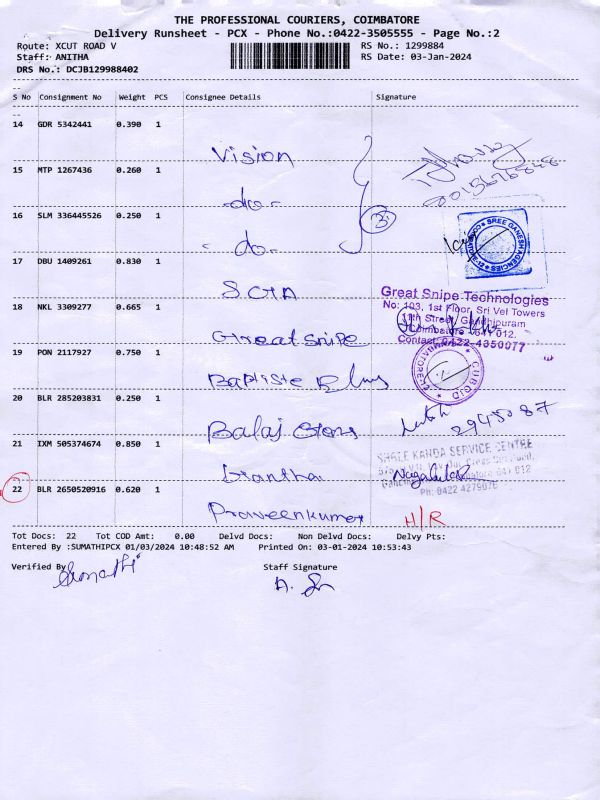 THE PROFESSIONAL COURIERS, COIMBATORE
Delivery Runsheet - PCX - Phone No.:0422-3505555 - Page No.:2
Route: XCUT ROAD V RS No.: 1299884
Staff: ANITHA RS Date: 03-Jan-2024
DRS No.: DCJB129988402
S No Consignment No Weight PCS Consignee Details Signature
14 GDR 5342441 0.390 1
Vision
15 MTP 1267436 0.260 1
-do-
16 SLM 336445526 0.250 1
-do- 3
SREE GANESH AGENCIES
17 DBU 1409261 0.830 1
SGA
Great Snipe Technologies
No: 103, 1st Floor, Sri Vel Towers
11th Street, Gandhipuram
Coimbatore - 641 012.
Contact: 0422-4350077
18 NKL 3309277 0.665 1
Great Snipe
19 PON 2117927 0.750 1
Baptiste
20 BLR 285203831 0.250 1
Balaj
21 IXM 505374674 0.850 1
SHREE KANDA SERVICE CENTRE
Grantha
22 BLR 2650520916 0.620 1
Praveenkumar H/R
Tot Docs: 22 Tot COD Amt: 0.00 Delvd Docs: Non Delvd Docs: Delvy Pts:
Entered By :SUMATHIPCX 01/03/2024 10:48:52 AM Printed On: 03-01-2024 10:53:43
Verified By Staff Signature
Sumathi